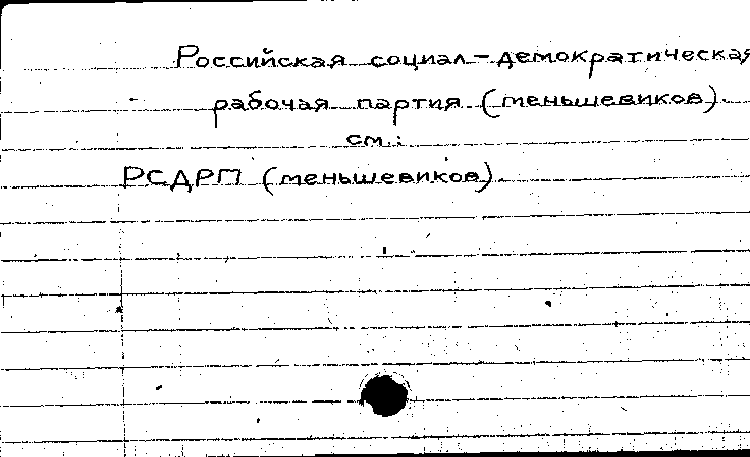 Российская социал-демократическая
рабочая партия (меньшевиков).
см.:
РСДРП (меньшевиков).